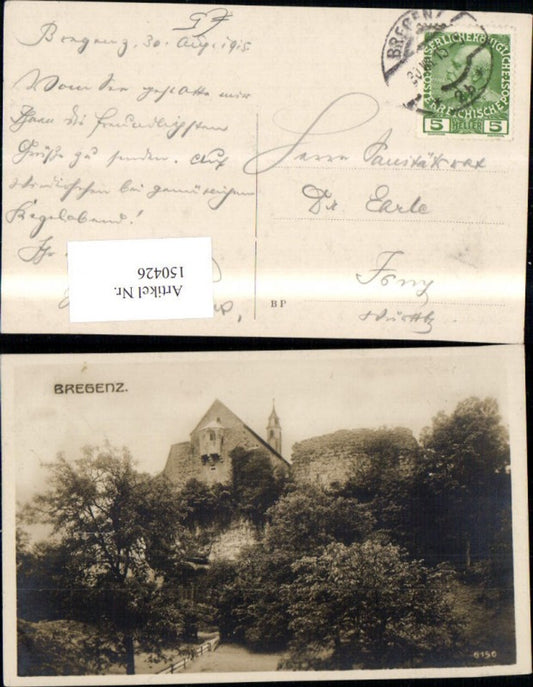 Bregenz, 30. Aug. 1915
Vom See gestatte mir
Ihnen die freundlichsten
Grüße zu senden. Auf
Wiedersehen bei gemütlichem
Kegelabend!
Ihr
BREGENZ
KAISERLICHE KÖNIGLICHE
ÖSTERREICHISCHE POST
5 HELLER 5
Herrn Sanitätsrat
Dr. Ehrle
Isny
Württbg
BP
Artikel Nr.
150426
BREGENZ.
6196